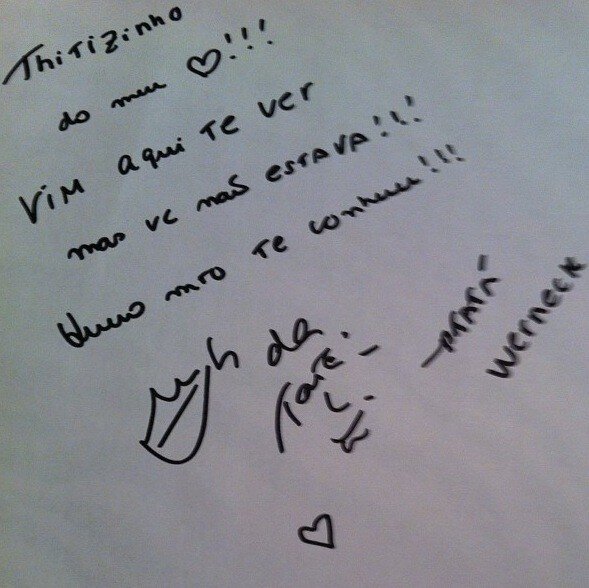 Thitizinho
do meu ♡!!!
Vim aqui te ver
mas vc não estava!!!
Quero mto te conhecer!!!
da
Tatá
Werneck